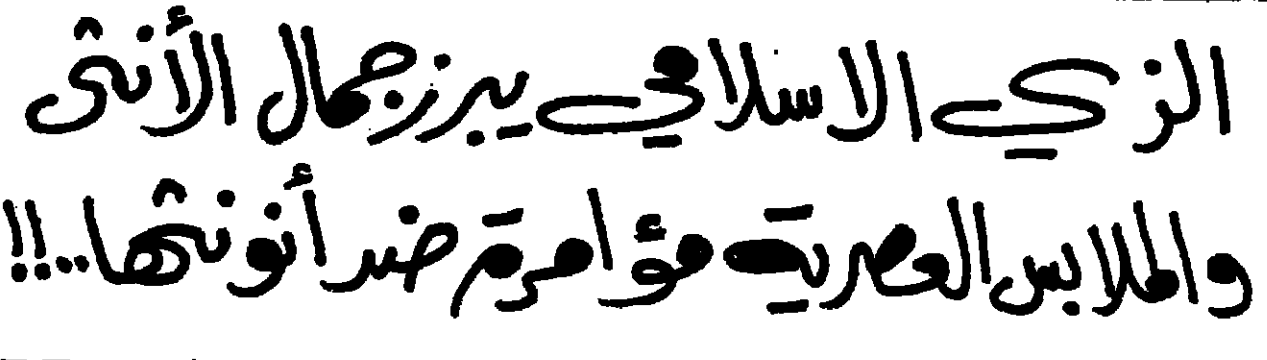 الزي الاسلامي يبرز جمال الأنثى
والملابس العصرية مؤامرة ضد أنوثتها..!!